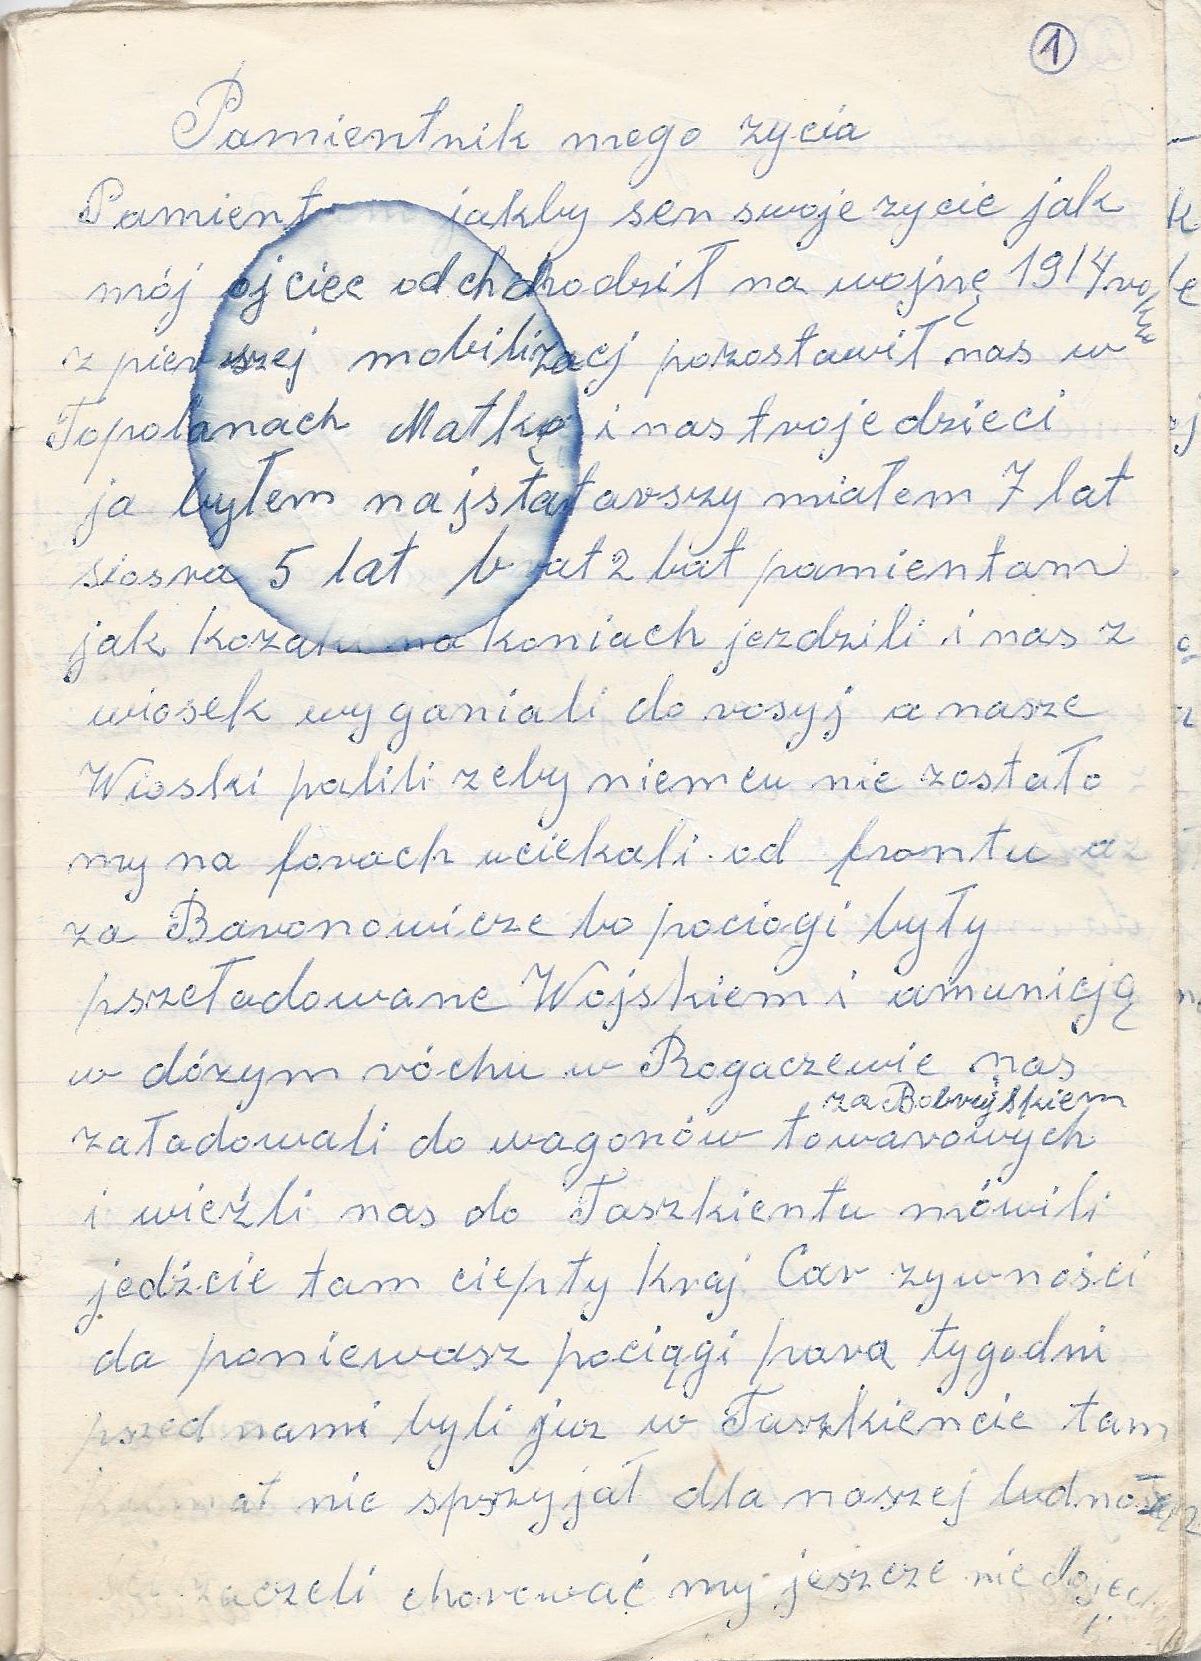 1
Pamientnik mego zycia
jakby sen swoje zycie jak
mój ojciec odchodził na wojnę 1914 roku
z pierwszej mobilizacj pozostawił nas w
Topolanach Matkę i nas troje dzieci
ja byłem najstatarszy miałem 7 lat
siosra 5 lat brat 2 lat pamientam
jak kozaki na koniach jezdzili i nas z
wiosek wyganiali do rosyj a nasze
Wioski palili zeby niemcu nie zostało
my na forach uciekali od frontu az
za Baronowicze bo pociogi były
pszeładowane Wojskiem i amunicją
w dózym róchu w Rogaczewie nas
za Bobrujskiem
załadowali do wagonów towarowych
i wieźli nas do Taszkientu mówili
jedźcie tam ciepły kraj Car zywności
da poniewasz pociągi parą tygodni
pszed nami byli juz w Taszkiencie tam
nie spszyjał dla naszej
zaczeli chorować my jeszcze nie